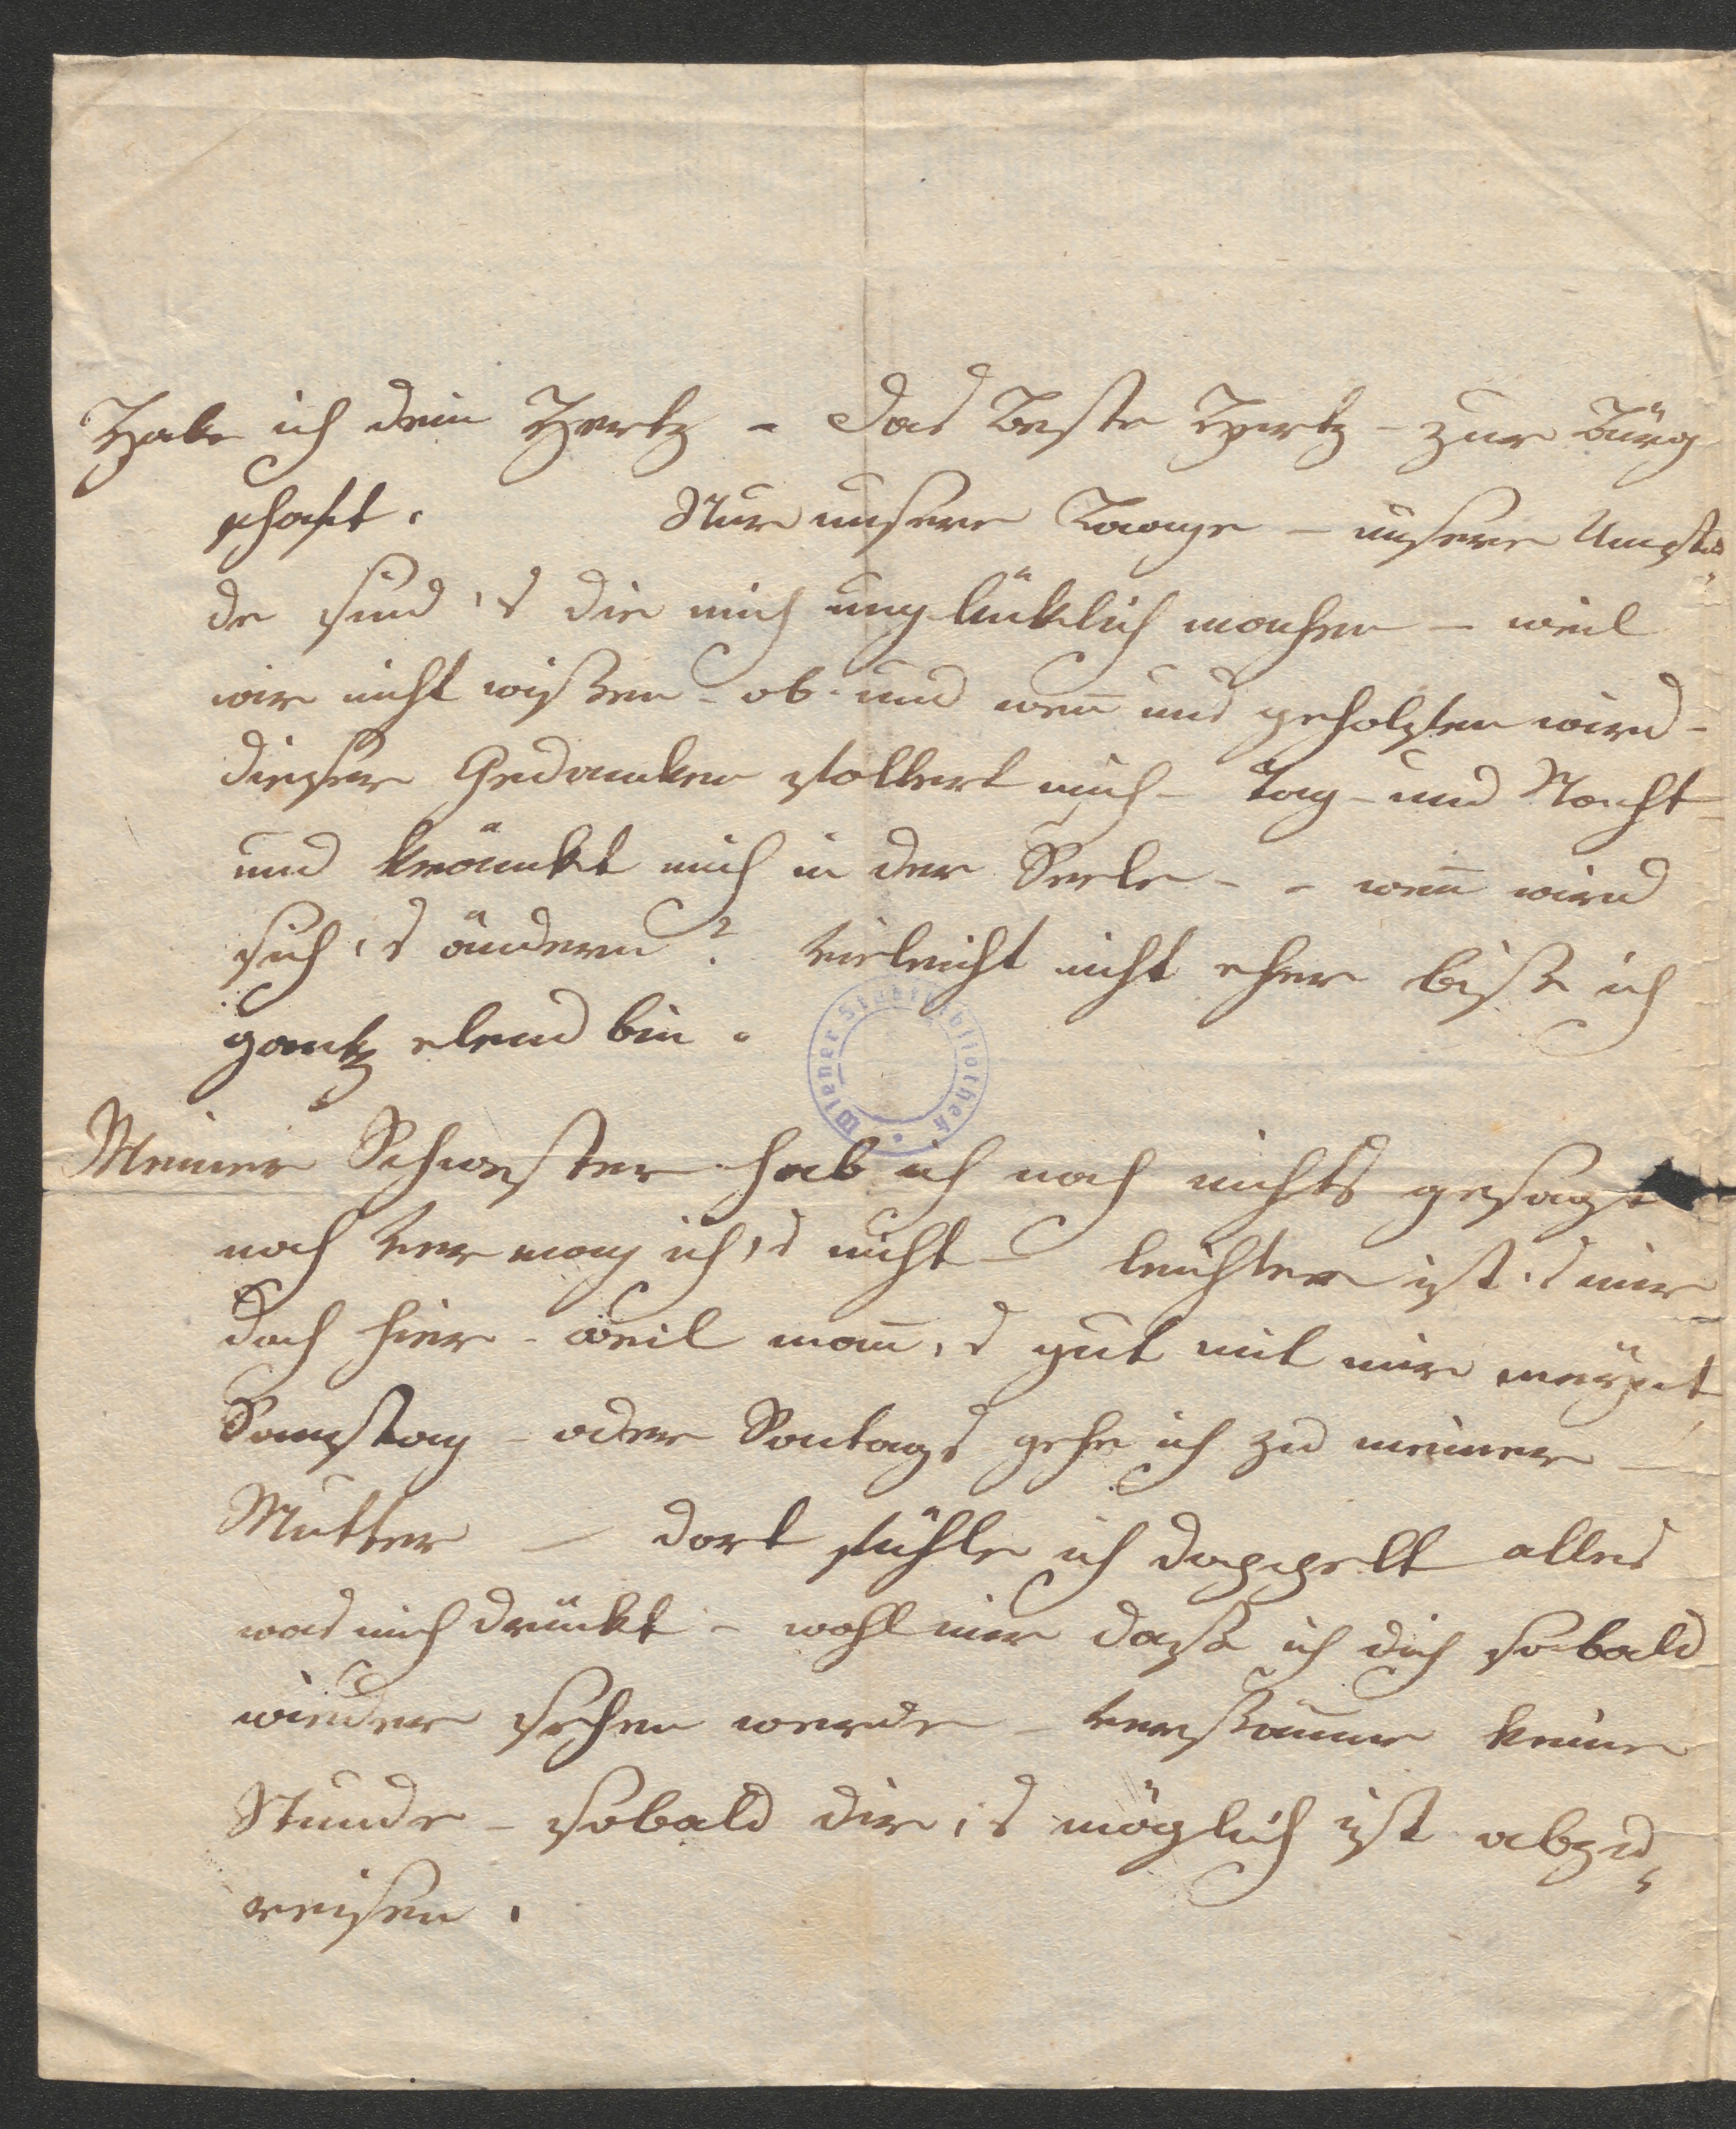 Habe ich dein Hertz - das Beste Hertz - zur Bürg
schaft. Nur unsere Laage - unsere Umstä„
de sind es die mich unglüklich machen - weil
wir nicht wißen - ob - und wen̄ uns geholfen wird -
dieser Gedanken foltert mich - Tag - und Nacht -
und kränckt mich in der Seele - - wen̄ wird
sich es ändern? vieleicht nicht eher biß ich
gantz elend bin.
Wiener Stadtbibliothek
Meiner Schwester hab ich noch nichts gesagt
noch vermag ich es nicht - leichter ist es mir
doch hier - weil man̄ es gut mit mir
Samstag - oder Sontags gehe ich zu meiner -
Mutter - dort fühle ich doppelt alles
was mich drückt - wohl mir daß ich dich sobald
wieder sehen werde - versäume keine
Stunde - sobald dir es möglich ist abzu„
reisen.